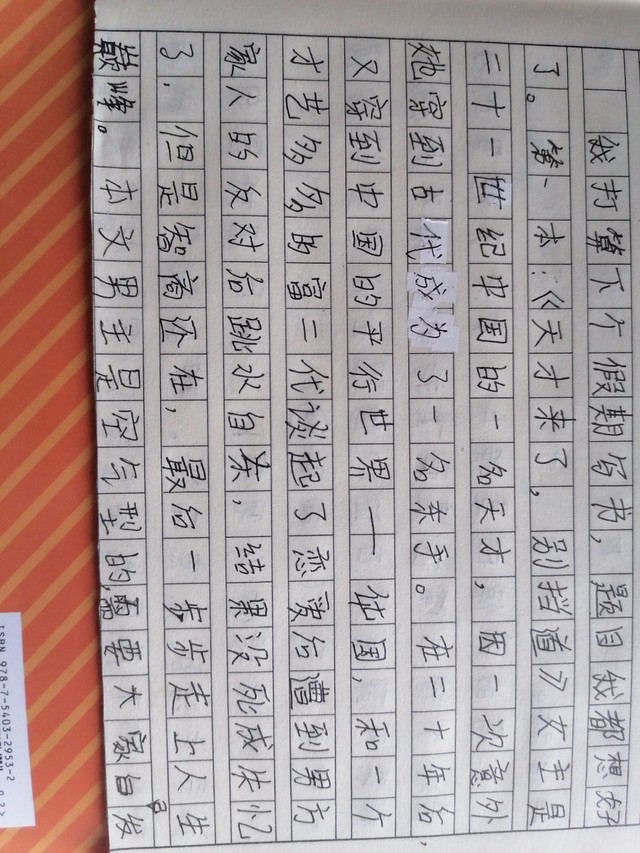 我打算下个假期写书，题目我都想好
了。第一本：《天才来了，别挡道》女主是
二十一世纪中国的一名天才，因一次意外
她穿到古代成为了一名杀手。在二十年后
又穿到中国的平行世界——华国，和一个
才艺多多的富二代谈起了恋爱后遭到男方
家人的反对后跳水自杀，结果没死成失忆
了，但是智商还在，最后一步步走上人生
巅峰。本文男主是空气型的，需要大家自己发
ISBN 978-7-5403-2953-2